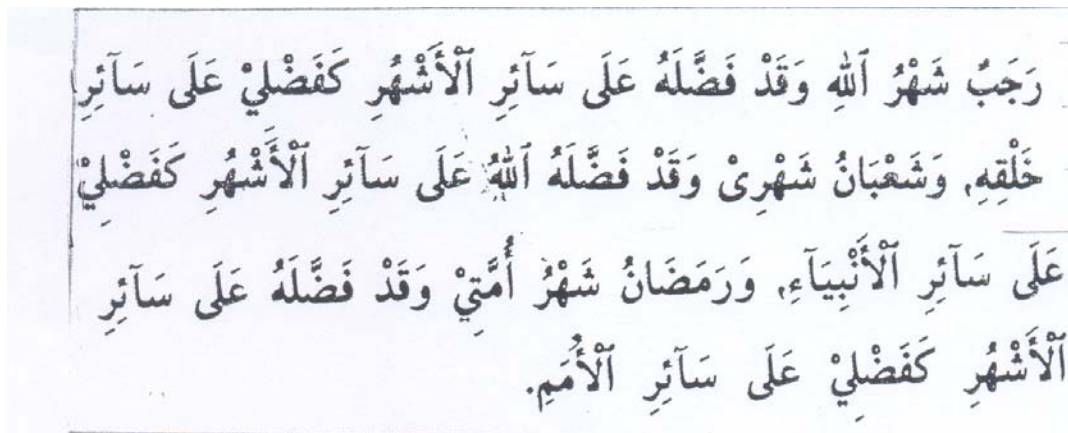 رَجَبٌ شَهْرُ ٱللهِ وَقَدْ فَضَّلَهُ عَلَى سَآئِرِ ٱلْأَشْهُرِ كَفَضْلِيْ عَلَى سَآئِرِ
خَلْقِهِ, وَشَعْبَانُ شَهْرِىْ وَقَدْ فَضَّلَهُ ٱللهُ عَلَى سَآئِرِ ٱلْأَشْهُرِ كَفَضْلِيْ
عَلَى سَآئِرِ ٱلْأَنْبِيَآءِ, وَرَمَضَانُ شَهْرُ أُمَّتِيْ وَقَدْ فَضَّلَهُ عَلَى سَآئِرِ
ٱلْأَشْهُرِ كَفَضْلِيْ عَلَى سَآئِرِ ٱلْأُمَمِ.